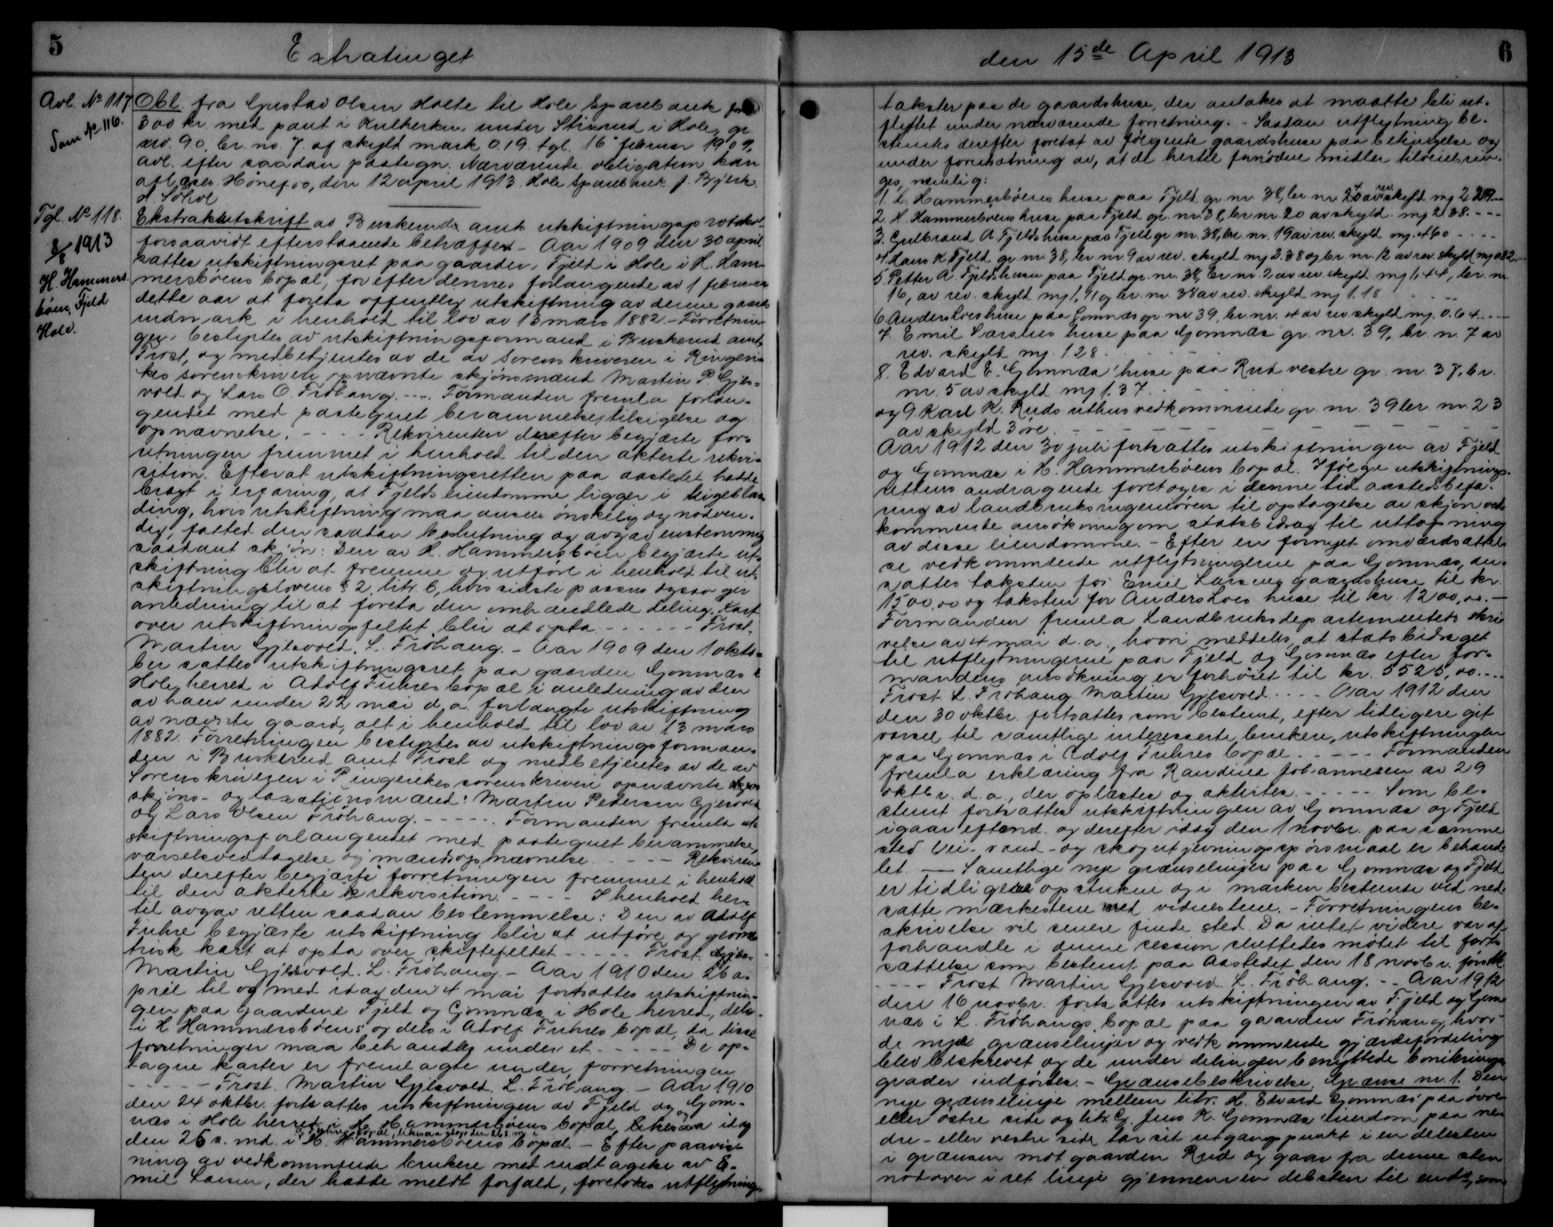 5
Extratinget
Avl. No 117
Sam. No 116.
Obl. fra Gustav Olsen Holte til Hole Sparebank for
300 kr med pant i Kulkerkn under Stixrud i Hole, gr
nr. 90, br. no. 7 af skyld mark 0.19. tgl. 16 februar 1909,
avl. efter saadan paategn. Nærværende obligation kan
aflæses. Hønefos, den 12 april 1913. Hole Sparebank J. Bjerk.
Tgl. No 118.
8/8 1913
H. Hammers
bøen, Fjeld
Hole.
Ekstraktutskrift av Buskeruds amt utskiftningsprotokol
forsaavidt efterstaaende betræffer. – Aar 1909 den 30 april
sattes utskiftningsret paa gaarden Fjeld i Hole i H. Ham-
mersbøens bopæl, for efter dennes forlangende av 1 februar
dette aar at foreta offentlig utskiftning av denne gaards
indmark i henhold til lov av 13 mars 1882. – Forretnin
gen bestyrtes av utskiftningsformand i Buskerud amt
Frost, og medbetjentes av de av sorenskriveren i Ringeri-
kes sorenskriveri opnævnte skjønsmænd Martin P. Gjes-
vold og Lars O. Frøhaug. --- Formanden fremla forlan-
gendet med paategnet berammelse, tilsigelse og
opnævnelse. --- Rekvirenten derefter begjærte for-
retningen fremmet i henhold til den akterte rekvi-
sition. Efterat utskiftningsretten paa aastedet hadde
bragt i erfaring, at Fjelds eiendomme ligger i teigeblan
ding, hvis utskiftning maa ansees ønskelig og nødven-
dig, fattet den saadan beslutning og avgav enstemmig
saadant skjøn: Den av H. Hammersbøen begjærte ut-
skiftning blir at fremme og utføre i henhold til ut-
skiftningslovens § 2, litr. b, hvis sidste passus ogsaa gir
anledning til at foreta den omhandlede deling. Kart
over utskiftningsfeltet blir at opta ------ Frost.
Martin Gjesvold. L. Frøhaug. – Aar 1909 den 1 okto-
ber sattes utskiftningsret paa gaarden Gomnæs i
Hole herred i Adolf Fuhres bopæl i anledning av den
av ham under 22 mai d. a. forlangte utskiftning
av nævnte gaard, alt i henhold til lov av 13 mars
1882. Forretningen bestyrtes av utskiftningsforman-
den i Buskerud amt Frost og medbetjentes av de av
Sorenskriveren i Ringerikes sorenskriveri opnævnte
skjøns- og taxationsmænd: Martin Pedersen Gjesvold
og Lars Olsen Frøhaug. ----- Formanden fremla ut-
skiftningsforlangendet med paategnet berammelse,
varselsvedtagelse og mandsopnævnelse. ---- Rekviren
ten derefter begjærte forretningen fremmet i henhold
til den akterte rekvisition. ---- I henhold her-
til avgav retten saadan bestemmelse: Den av Adolf
Fuhre begjærte utskiftning blir at utføre og geome-
trisk kart at opta over skiftefeltet ----- Frost.
Martin Gjesvold. L. Frøhaug. – Aar 1910 den 26 a-
pril til og med idag den 4 mai fortsattes utskiftnin-
gen paa gaardene Fjeld og Gomnæs i Hole herred, dels
i H. Hammersbøens og dels i Adolf Fuhres bopæl, da disse
forretninger maa behandles under et ----- De op-
tagne karter er fremlagte under forretningen
----- Frost. Martin Gjesvold. L. Frøhaug – Aar 1910
den 24 oktbr. fortsattes utskiftningen av Fjeld og Gom-
næs i Hole herred i H. Hammersbøens bopæl, likesaa idag
den 25 s. md. i H. Hammersbøens bopæl. – Efter paavis-
ning av vedkommende brukere med undtagelse av E-
mil Larsen, der hadde meldt forfald, foretokes utflytnings
den 15de April 1913
6
takster paa de gaardshuse, der antakes at maatte bli ut-
flyttet under nærværende forretning. – Saadan utflytning be-
stemtes derefter foretat av følgende gaardshuse paa betingelse og
under forutsætning av, at de hertil fornødne midler tilveiebrin-
ges, nemlig:
1. L. Hammersbøens huse paa Fjeld gr. nr 38, br. nr 20 av rev. skyld mg 2.38 --
2. H. Hammersbøens huse paa Fjeld gr. nr. 38, br. nr 20 av skyld mg 2.38. ---
3. Gulbrand A. Fjelds huse paa Fjeld gr. nr. 38, br. nr. 19 av rev. skyld mg. 4.60 ----
4. Hans K. Fjeld, gr. nr. 38, br. nr 9 av rev. skyld mg 3.38 og br. nr. 12 av rev. skyld mg 0.82
5. Petter A. Fjelds huse paa Fjeld gr. nr. 38, br. nr 2 av rev. skyld mg 1.44, br. nr
16, av rev. skyld mg 1.71 og br. nr 33 av rev. skyld mg 1.18 -----
6. Anders Loes huse paa Gomnæs gr. nr 39, br. nr. 4 av rev. skyld mg. 0.64 ----
7. Emil Larsens huse paa Gomnæs gr. nr. 39, br. n. 7 av
rev. skyld mg. 1.28. - - - - -
8. Edvard E. Gomnæs' huse paa Rud vestre gr. nr. 37, br.
nr. 5 av skyld mg 1.37.
og 9. Karl K. Ruds uthus vedkommende gr. nr. 39 br. nr. 23
av skyld 3 øre. - - - - - - - -
Aar 1912 den 30 juli fortsattes utskiftningen av Fjeld
og Gomnæs i H. Hammersbøens bopæl. Ifølge utskiftnings-
rettens andragende foretoges i denne tid aastedsbefa-
ring av landbruksingeniøren til optagelse av skjøn ved-
kommende ansøkning om statsbidrag til uttapning
av disse eiendomme. – Efter en fornyet omværdsættel-
se vedkommende utflytningerne paa Gomnæs, an-
sattes taksten for Emil Larsens gaardshuse til kr.
1500,00 og taksten for Anders Loes huse til kr. 1200,00. –
Formanden fremla Landbruksdepartementets skri-
velse av 4 mai d. a., hvori meddeltes, at statsbidraget
til utflytningerne paa Fjeld og Gomnæs efter for-
mandens ansøkning er forhøiet til kr. 5525,00. ---
Frost L. Frøhaug. Martin Gjesvold. ---- Aar 1912 den
den 30 oktbr. fortsattes som bestemt, efter tidligere git
varsel til samtlige interesserte brukere, utskiftningen
paa Gomnæs i Adolf Fuhres bopæl. ---- Formanden
fremla erklæring fra Randine Johannesen av 29
oktbr. d. a., der oplæstes og aktertes. ----- Som be-
stemt fortsattes utskiftningen av Gomnæs og Fjeld
igaar efterm. og derefter idag den 1 novbr. paa samme
sted. Vei- vand- og skogutjevningsspørsmaal er behand
let. – Samtlige nye grænselinjer paa Gomnæs og Fjeld
er tidligere opstukne og i marken bestemte ved ned-
satte merkestene med vidnestene. – Forretningens be-
skrivelse vil senere finde sted. Da intet videre var at
forhandle i denne session sluttedes møtet til fort-
sættelse som bestemt paa Aastedet den 18 novbr. førstk.
---- Frost Martin Gjesvold. L. Frøhaug. -- Aar 1912
den 16 novbr. fortsattes utskiftningen av Fjeld og Gom
næs i L. Frøhaugs bopæl paa gaarden Frøhaug, hvor-
de nye grænselinjer og vedkommende gjærdefordeling
blev beskrevet og de under delingen benyttede boniterings
grader indførtes. – Grænsebeskrivelse. Grænse nr. 1. Den
nye grænselinje mellem litr. H. Edvard Gomnæs' paa øvre
eller østre side og litr. G. Jens K. Gomnæs' eiendom paa ne-
dre- eller vestre side tar sit utgangspunkt i en delesten
i grænsen mot gaarden Rud og gaar fra denne sten
nordover i ret linje gjennem en delesten til ends, som